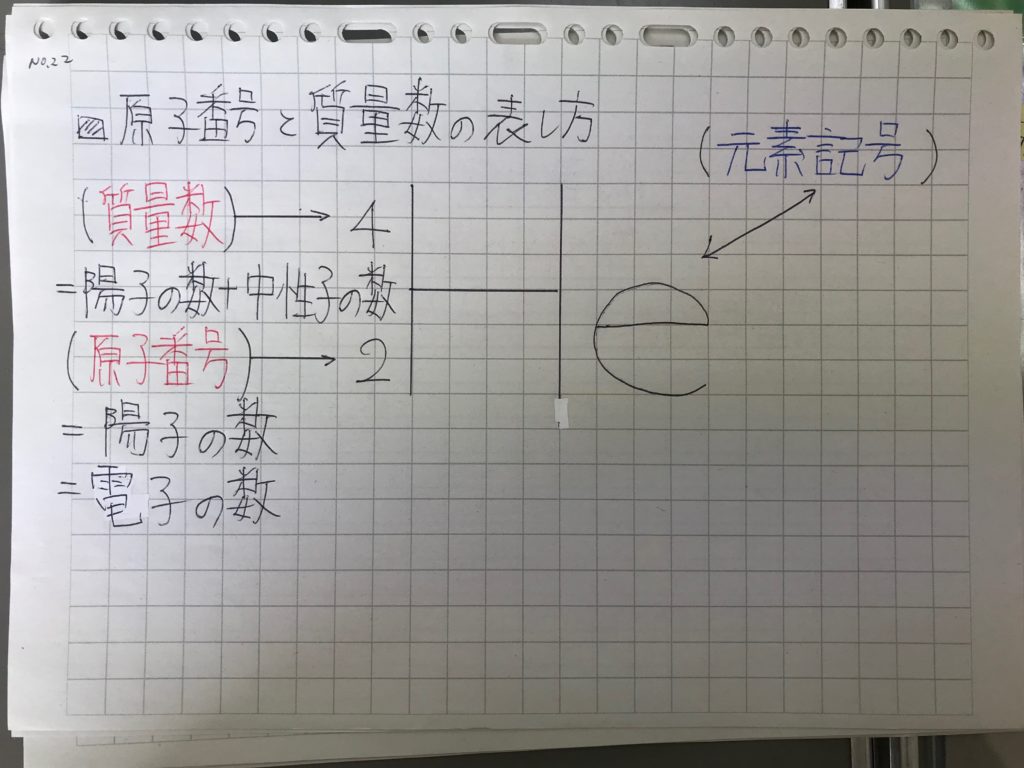 NO.22
▨ 原子番号と質量数の表し方
(元素記号)
(質量数)→ 4
He
=陽子の数+中性子の数
(原子番号)→ 2
=陽子の数
=電子の数